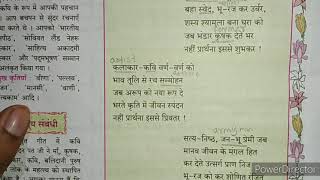 कवि के रूप में आपको
आप बचपन से सुंदर रचनाएँ
करते थे। आपको 'भारतीय
'सोवियत लैंड नेहरू
'साहित्य अकादमी
और 'पद्मभूषण' सम्मान
किया गया।
'वीणा', 'पल्लव',
'मानसी', 'वाणी'
आदि।
संबंधी
गीत में कवि
पंत जी ने माँ, कृषक,
कवि, बलिदानी पुरुष
लोक के महत्त्व को स्थापित
बहा स्वेद, भू-रज कर उर्वर,
शस्य श्यामला बना धरा को
जब भंडार कृषक देते भर
नहीं प्रार्थना इससे शुभकर !
artist
कलाकार-कवि वर्ण-वर्ण को
भाव तूलि से रच सम्मोहन
जब अरूप को नया रूप दे
भरते कृति में जीवन स्पंदन
नहीं प्रार्थना इससे प्रियतर !
सत्य-निष्ठ, जन-भू प्रेमी जब
मानव जीवन के मंगल हित
कर देते उत्सर्ग प्राण निज
भू-रज को कर शोणित रंजित
PowerDirector